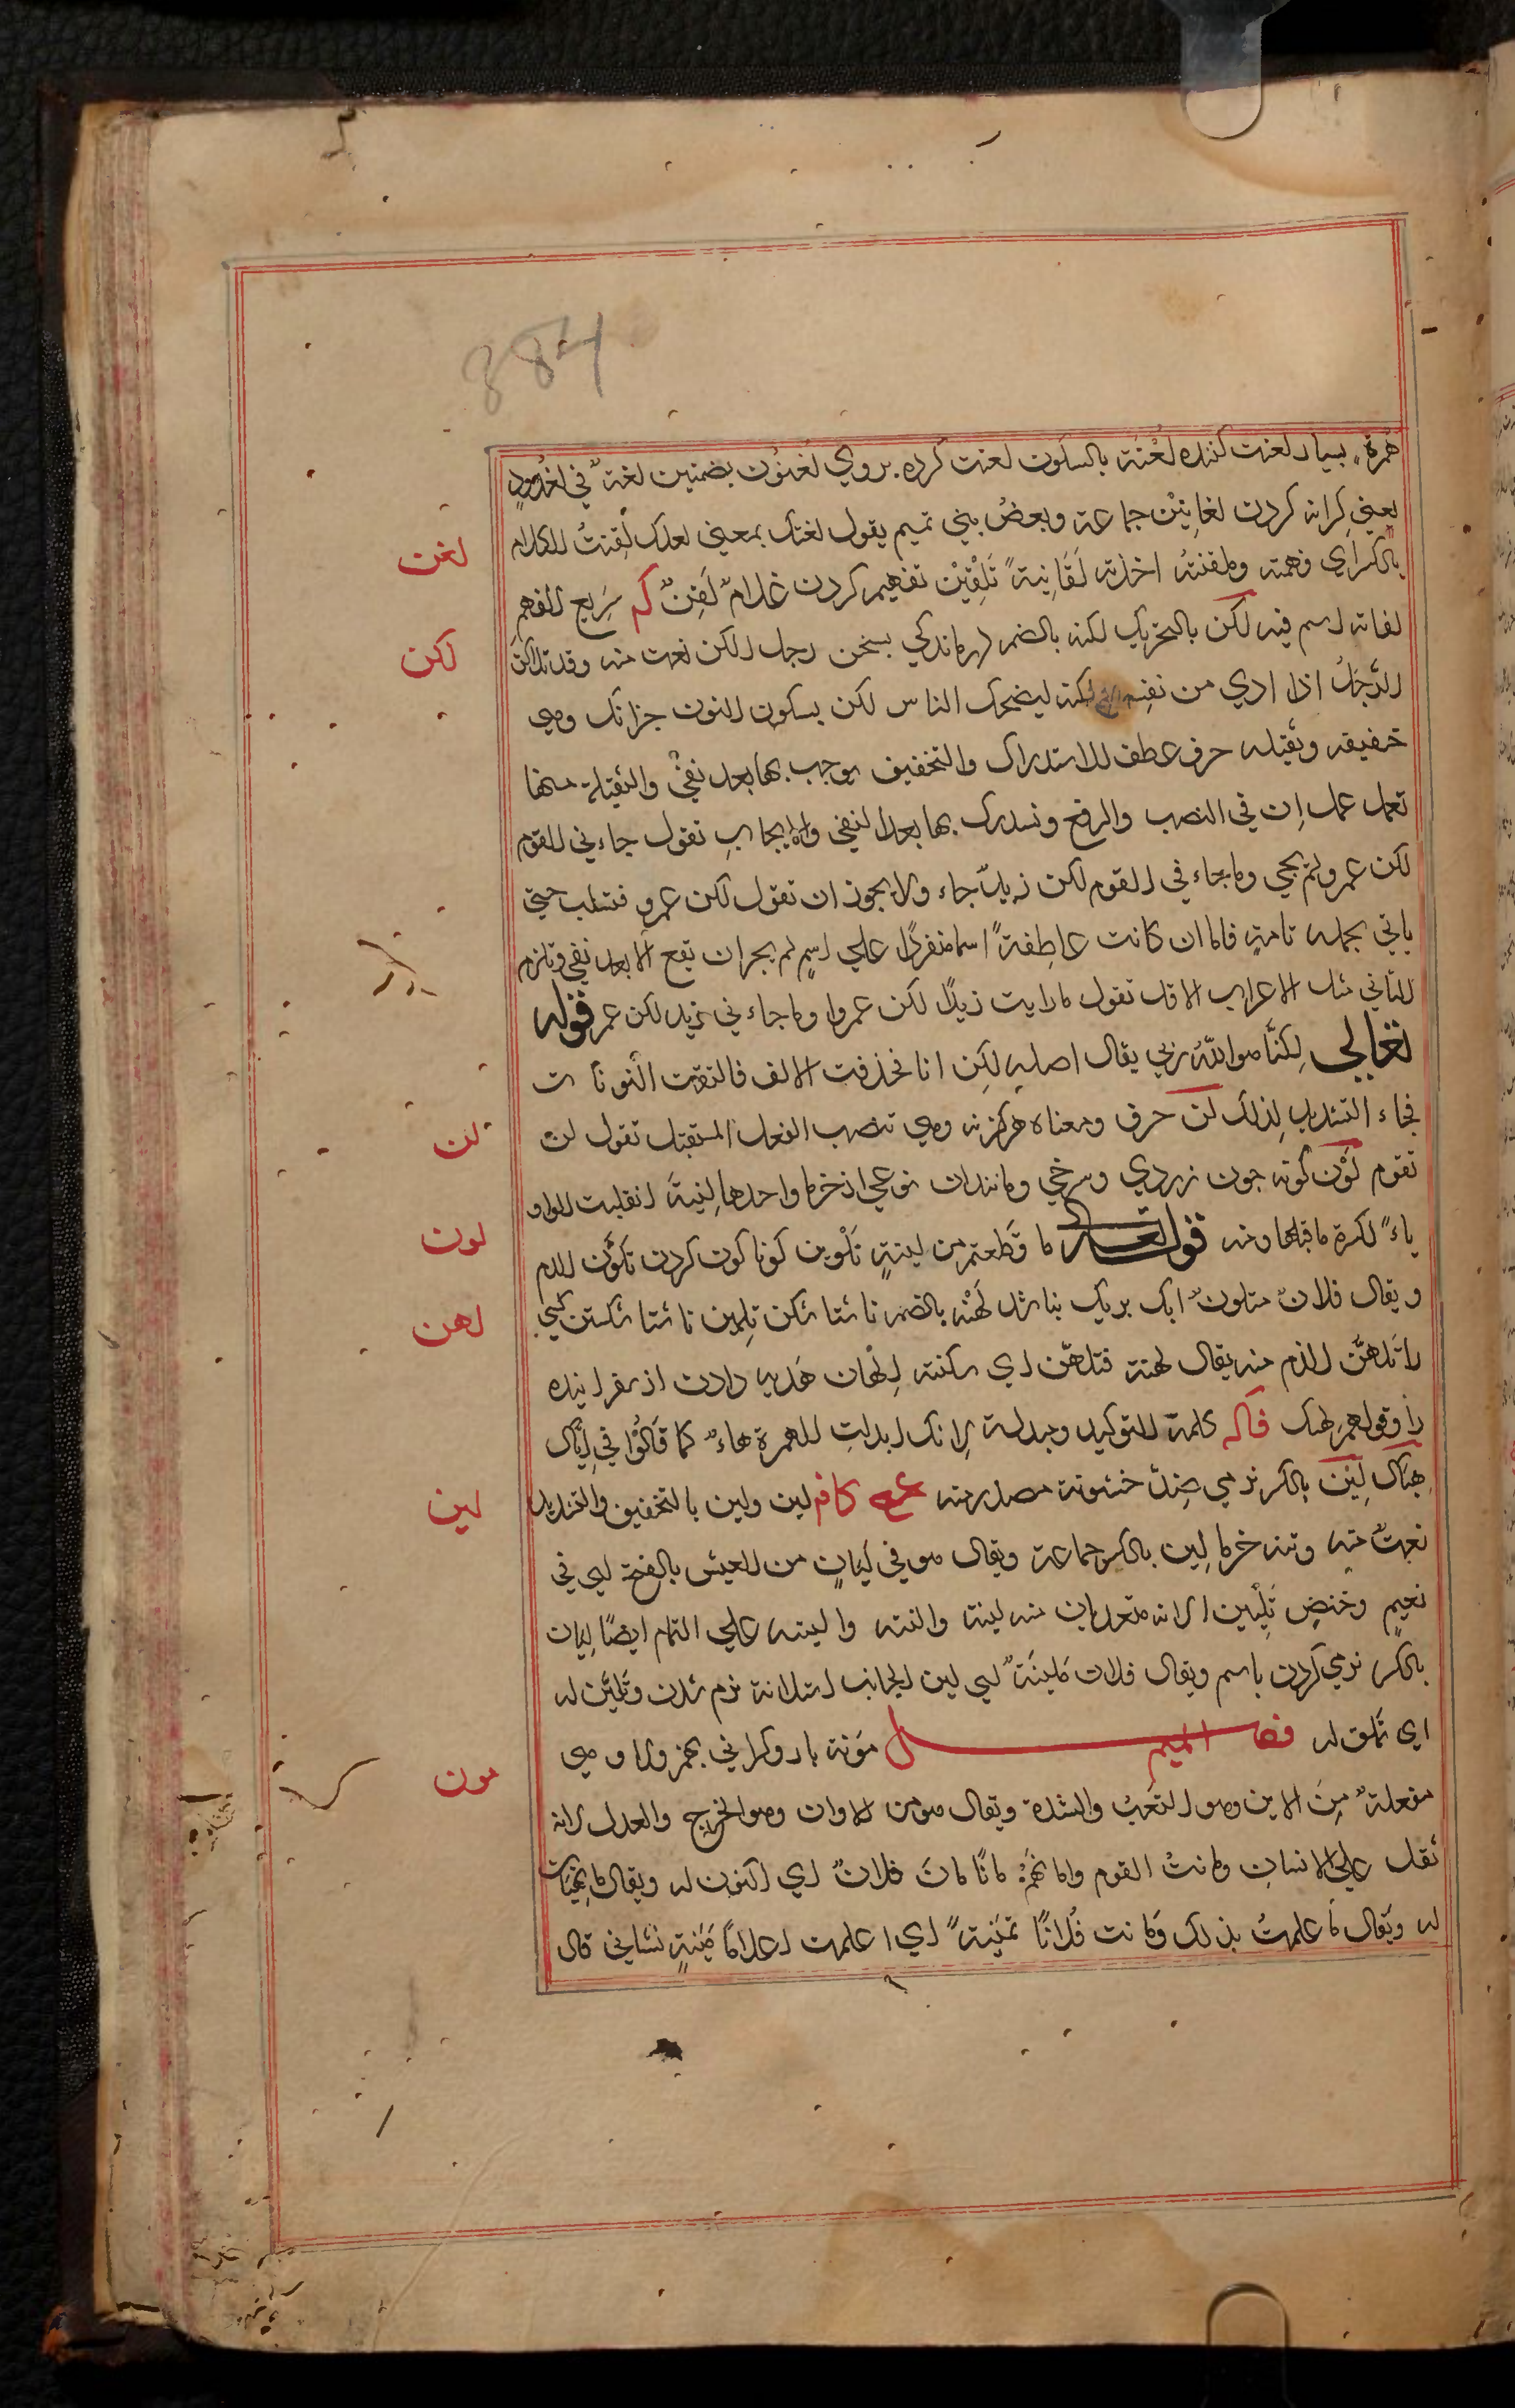 384
همزة، بسیار لعنت کننده لُعْنَة بالسکون لعنت کرده بروي لغنون بضمتین لغة في لغدود
یعنی کرانه کردن لغانین جماعة وبعضُ بني تمیم یقول لغنّک بمعنی لعلک لَقِنتُ الکلام
لغن
بالکسر ای فهمته وتلقنته اخذته لَقَانیةً تَلْقِیْن تفهیم کردن غلامٌ لَقِنٌ کم سَرِیع الفهم
لقانه اسم فیه لکن بالتحریک لکنه بالضم درماندکی بسخن رجل الکن نعت منه وقد تلاکن
لکن
الرَّجُلُ اذا اري من نفسه لکنة لیضحک الناس لکن بسکون النون جزانک وهي
خفیفه وثقیله حرف عطف للاستدراک والتخفیف یوجب بها بعد نفيٍ والثقیلة منها
تعمل عمل اِن في النصب والرفع وتستدرک بها بعد النفي والایجابِ تقول جاءني القوم
لکن عمرو لم یجي وما جاء في القوم لکن زیدًا جاء ولا یجوز ان تقول لکن عمرو فتسکت حتي
یاتي بجمله تامةٍ فاما ان کانت عاطِفةً اسما منفردًا علي اسمٍ لم یجز ان تقع الا بعد نفي وتلزم
الثاني مثل الاعراب الاول تقول ما رایت زیدًا لکن عمروا وما جاءني زید لکن عمر قوله
تعالي لٰکِنَّا هو اللّٰهُ ربي یقال اصله لکِن انا فحذفت الالف فالتقت النونان
فجاء التشدید لذلک لن حرف ومعناه هرکز نه وهي تنصب الفعل المستقبل تقول لن
لن
تقوم لَوْن کونه جون زردي وسرخي ومانندان نوعی از خرما واحدها لِینَة انقلبت الواو
لون
یاءً لکسرة ما قبلها ومنه قوله تعالي ما قَطعتم من لینةٍ تَلْوین کونا کون کردن تَلَوُّن اللازم
ویقال فلانٌ متلونٌ ایک بریک بنا شد لُهْنَه بالضم ناشتا شکن تلهین ناشتا شکستن کسي
لهن
را تَلَهُّن اللازم منه یقال لهنته فتلهّن اي سکنته اِلْهان هَدیه دادن از سفر اینده
را وقولهم لهنک کلمة للتوکید وبدلة لانک ابدلتِ الهمزة هاءً کما قَالُوْا في اِیّاک
هِیّاک لِیْن بالکسر نرمي ضِدُّ خشونة مصدر منه لین ولین بالتخفیف والتشدید
لین
نعتٌ منه وتنه خرما لِین بالکسر جماعة ویقال هو في لَیَانٍ من العیش بالفتح ای في
نعیمٍ وخفضٍ تَلْیِین الانه متعدیان منه لینته والنته والینته علي التمام ایضًا لِیَان
بالکسر نرمي کردن باسم ویقال فلان مَلینَةٌ ای لین الجانب استلانة نرم شدن وتَلَیَّن له
اي تملق له فصل المیم مَؤنَة بار وکراني بهمز وواو وهي
مون
مفعلةٌ مِنَ الاین وهو التعَبُ والشدة ویقال هو من الاوان وهو الخرج والعدل لانه
ثقل علی الانسانِ ومانتُ القوم وامانهُمْ مانًا مانَ فلانٌ اي اکنون له ویقال ما تهیأت
له ویقال ما علمتُ بذلک وَمانت فُلانًا تمئنِیةً اي اعلمت اعلامًا مَئنِةٍ نشاني قال